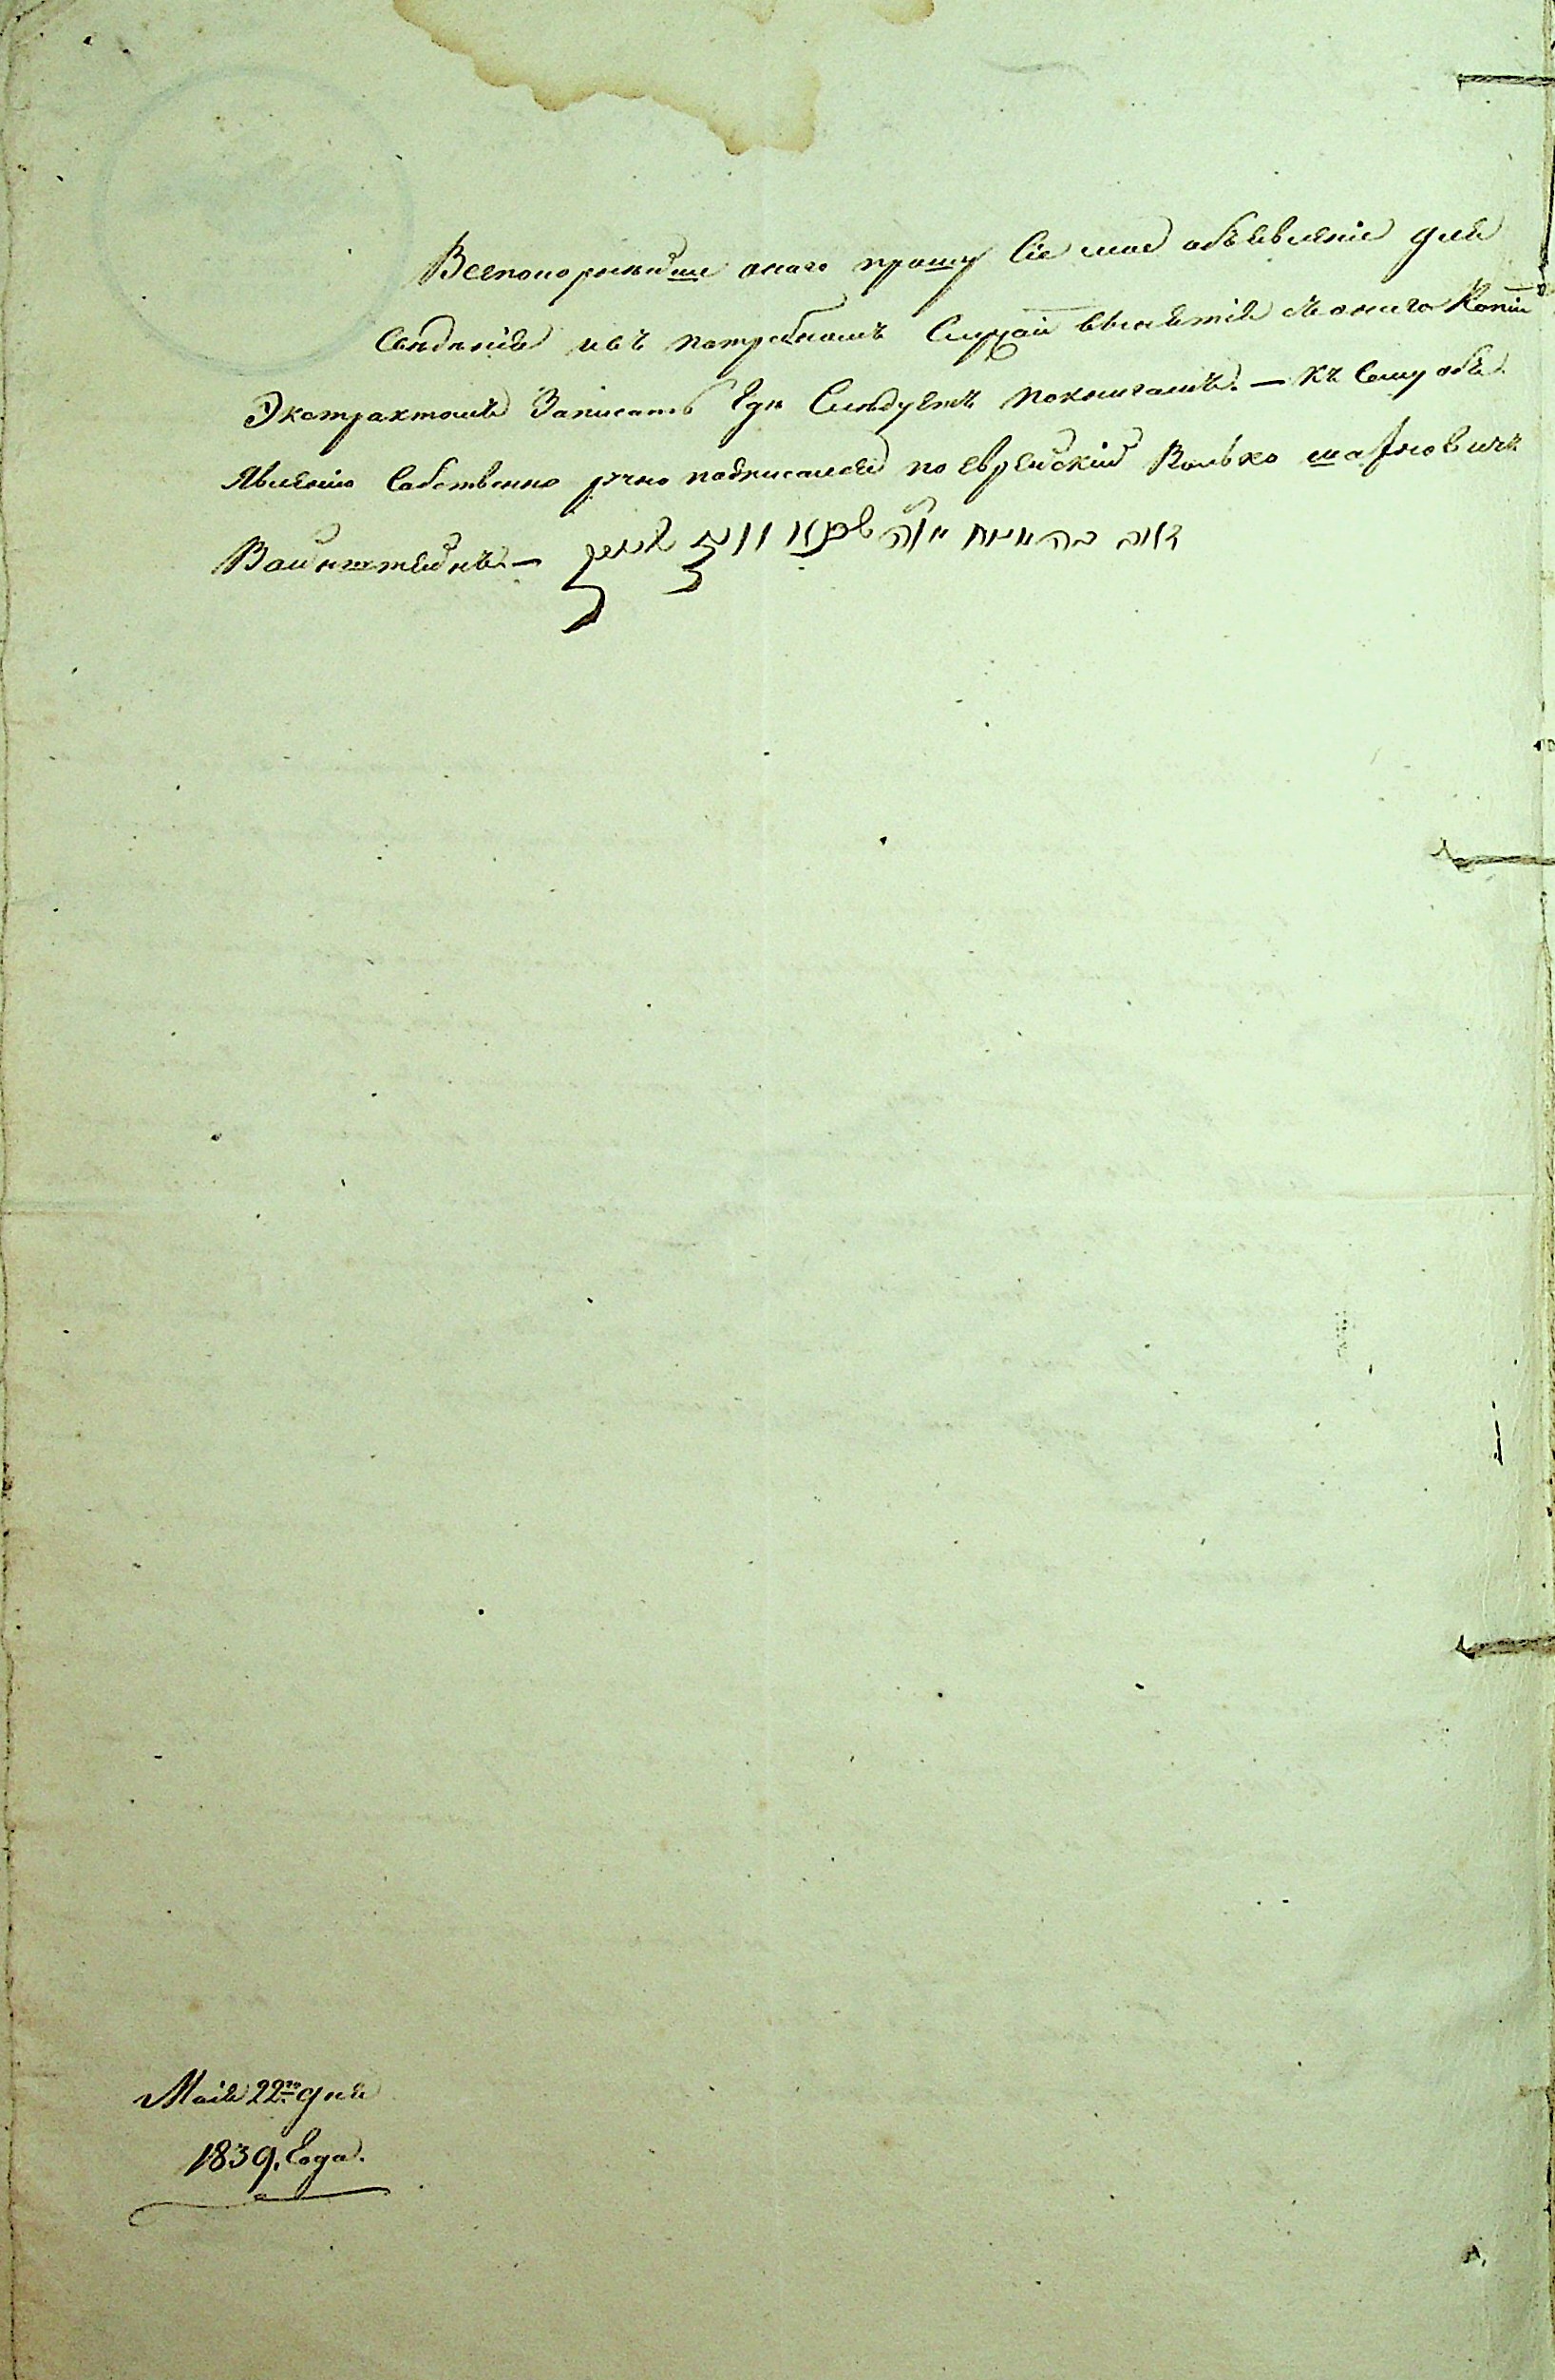 Всепокорнейше онаго прошу Сіе мое объевленіе для
Сведенія ивъ потребномъ Случаи вынятія Съонаго Копіи
Экстрактомъ Записать Где Следуетъ покнигамъ. — Къ Сему объ
Явленію Собственно ручно подписался по еврейский Волько
Вайнштейнъ. —
Маія 22го дня
1839. Года.